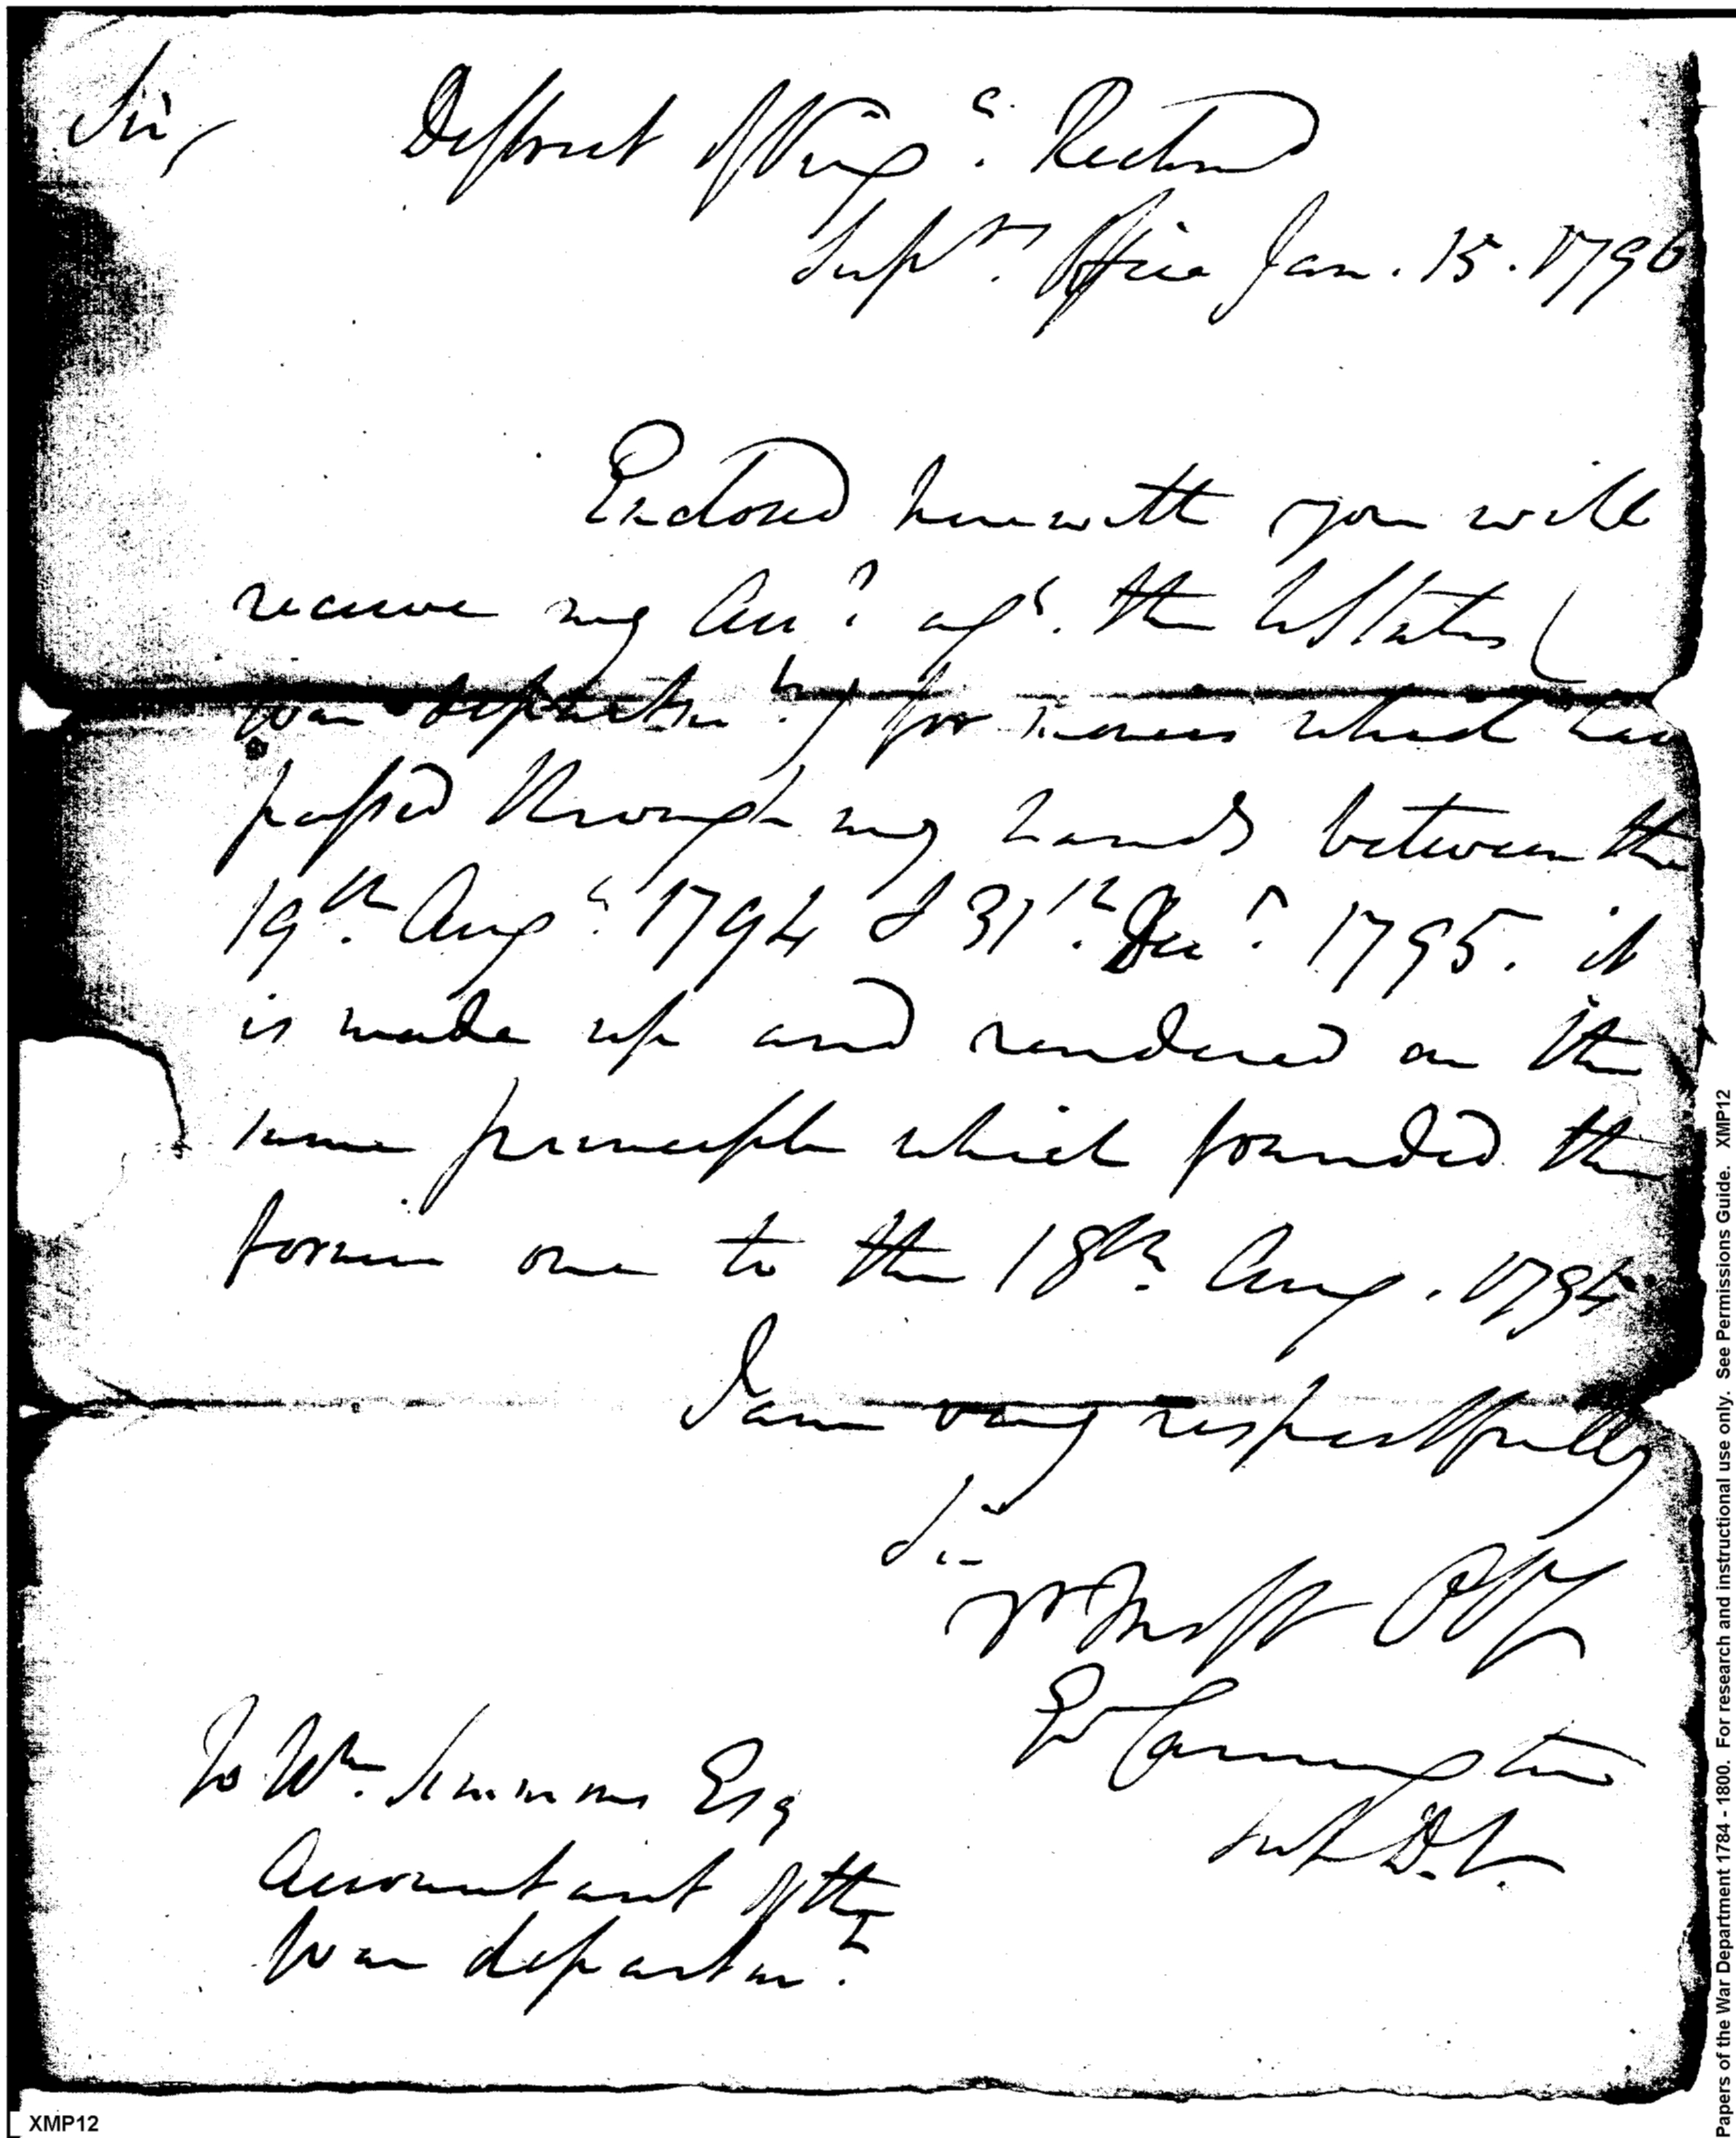 Sir,
District of Virga. Richmd
Suprs. Office Jan. 15. 1796
Enclosed herewith you will
receive my Acct. agt. the U States (
War departmt.) for monies which have
passed through my hands between the
19th. Augt. 1794 & 31st. Decr. 1795. it
is made up and rendered on the
same principle which founded the
former one to the 18th. Aug. 1794
I am very respectfully
Sir
yr Most Obt
Ed Carrington
Supr D. V.
To Wm. Simmons Esq
Accountant of the
War departmt.
XMP12
Papers of the War Department 1784 - 1800. For research and instructional use only. See Permissions Guide. XMP12